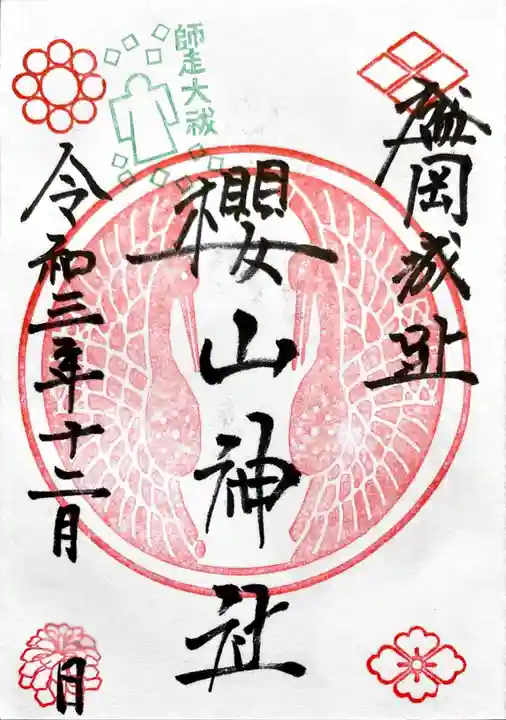 盛岡城趾
師走大祓
櫻山神社
令和三年十二月
日